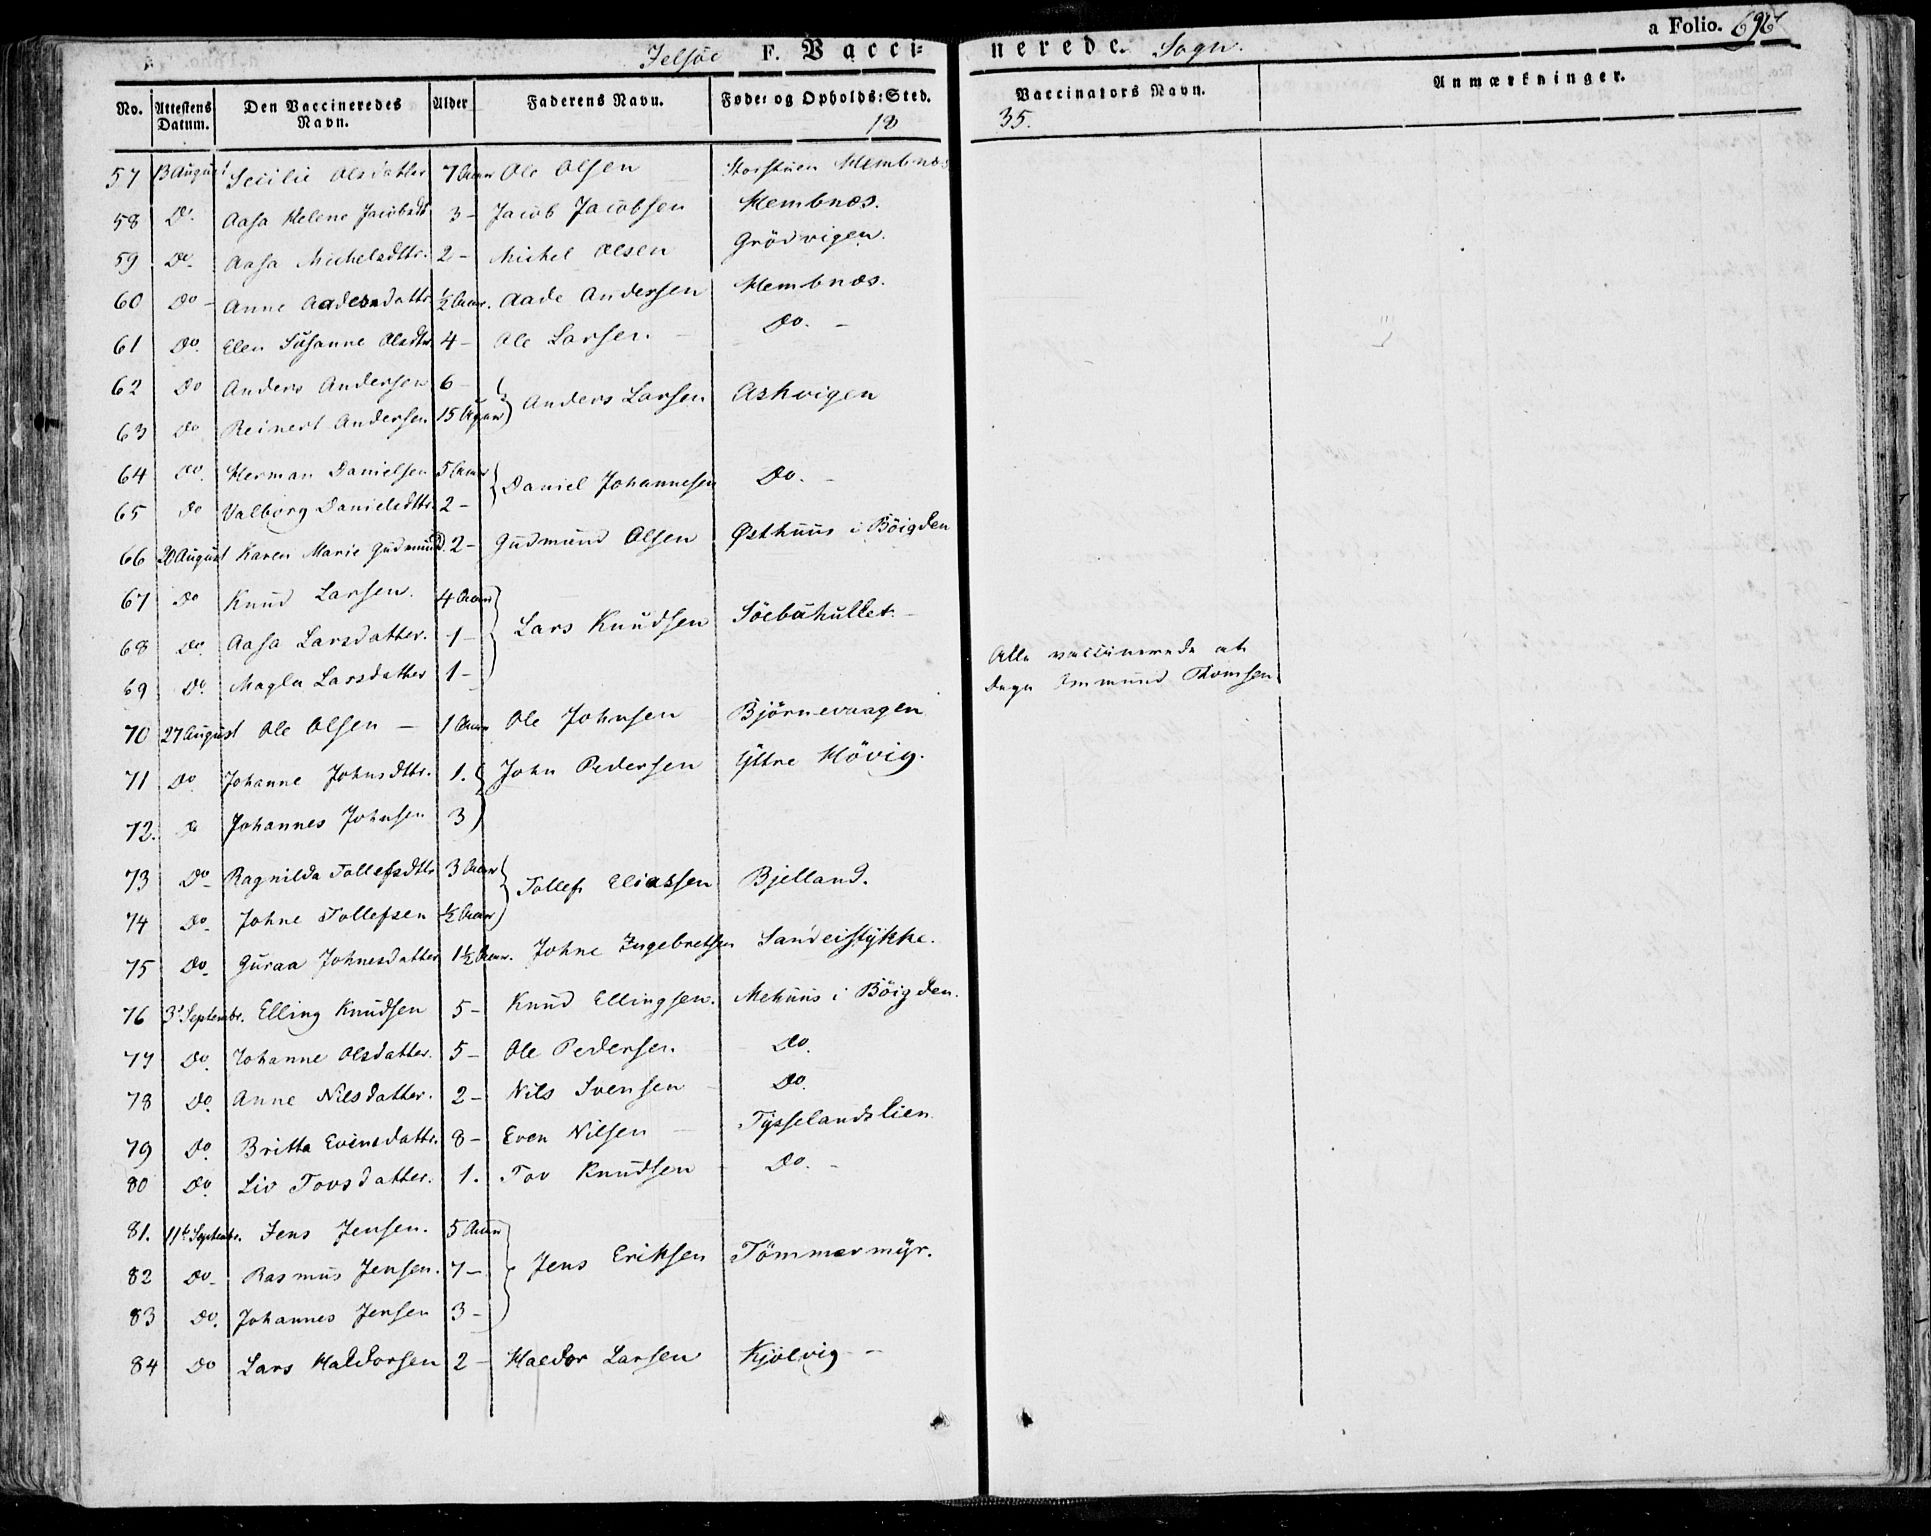 Jelsøe F. Vacci= nerede. Sogn. a Folio. 696
No. Attestens Datum. Den Vaccineredes Navn. Alder Faderens Navn. Føde= og Opholds=Sted. Vaccinators Navn. Anmærkninger.
18 35.
57 13 August Secilie Olsdatter 7 Aar Ole Olsen Storstuen Hembnæs
58 Do. Aasa Helene Jacobsdt 3 - Jacob Jacobsen Hembnæs.
59 Do. Aasa Michelsdttr. 2 - Michel Olsen Grödvigen.
60 Do - Anne Aadesdattr ½ Aar. Aade Andersen Hembnæs.
61 Do. Elen Susanne Olsdtr. 4 - Ole Larsen. - Do. -
62 Do Anders Andersen 6 -
63 Do Reinert Andersen 15 Anders Larsen Askvigen
64 Do. Herman Danielsen 5 Aar
65 Do Valborg Danielsdttr. 2 - Daniel Johannesen Do. -
66 20 August Karen Marie Gudmund. 2 - Gudmund Olsen Østhuus i Böigden
67 Do Knud Larsen. 4 Aar
68 Do. Aasa Larsdatter. 1 - Lars Knudsen Söebuhullet. -
69 Do. Magla Larsdatter 1 -
Alle vaccinerede at
Amund Thomsen
70 27 August Ole Olsen - 1 Aar Ole Johnsen Björnevaagen
71 Do Johanne Johnsdttr. 1. John Pedersen Yttre Hövig.
72. Do Johannes Johnsen 3
73 Do. Ragnilda Tollefsdttr 3 Aar
74 Do. Johne Tollefsen ½ Aar Tollef Eliassen Bjelland.
75 Do. Guraa Johnesdatter 1½ Aar. Johne Ingebretsen Sandeistykke.
76 3 Septembr. Elling Knudsen 5 - Knud Ellingsen. Mehuus i Böigden.
77 Do. Johanne Olsdatter. 5 - Ole Pedersen Do.
78 Do. Anne Nilsdatter. 2 - Nils Svensen Do.
79 Do. Britta Evensdattr. 8 - Even Nilsen - Tysselandslien
80 Do. Liv Tovsdatter. 1. Tov Knudsen Do. -
81. 11te Septembr. Jens Jensen. 5 Aar
82 Do. Rasmus Jensen. 7 - Jens Eriksen Tömmermyr.
83 Do. Johannes Jensen 3 -
84 Do Lars Haldorsen 2 - Haldor Larsen Kjölvig -